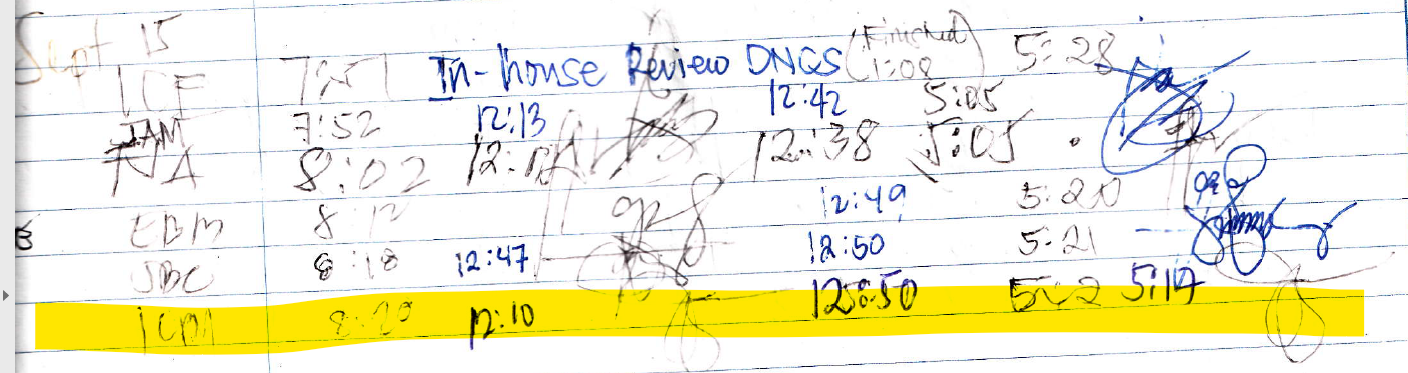 Sept 15
ICF 7:51 In-house Review DNGS (Finished 1:08) 5:28
JAM 7:52 12:13 12:42 5:05
TJA 8:02 12:38 5:05
EBM 8:12 12:49 5:20
JBC 8:18 12:47 12:50 5:21
8:20 12:10 12:50 5:17